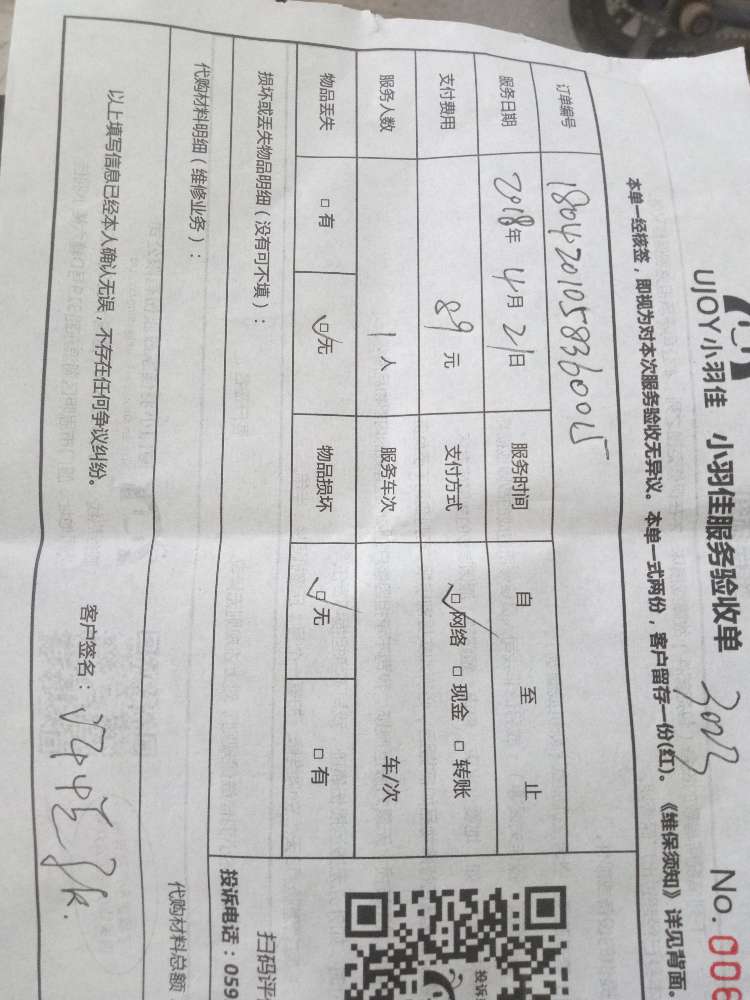 UJOY小羽佳 小羽佳服务验收单 No.006
3023
本单一经核签，即视为对本次服务验收无异议。本单一式两份，客户留存一份(红)。《维保须知》详见背面。
订单编号 180420105836005
服务日期 2018年 4月 21日 服务时间 自 至 止
支付费用 89 元 支付方式 □网络 □现金 □转账
服务人数 1 人 服务车次 车/次
物品丢失 □有 □无 物品损坏 □无 □有
损坏或丢失物品明细（没有可不填）：
代购材料明细（维修业务）： 代购材料总额
以上填写信息已经本人确认无误，不存在任何争议纠纷。 客户签名：
投诉
扫码评
投诉电话：059